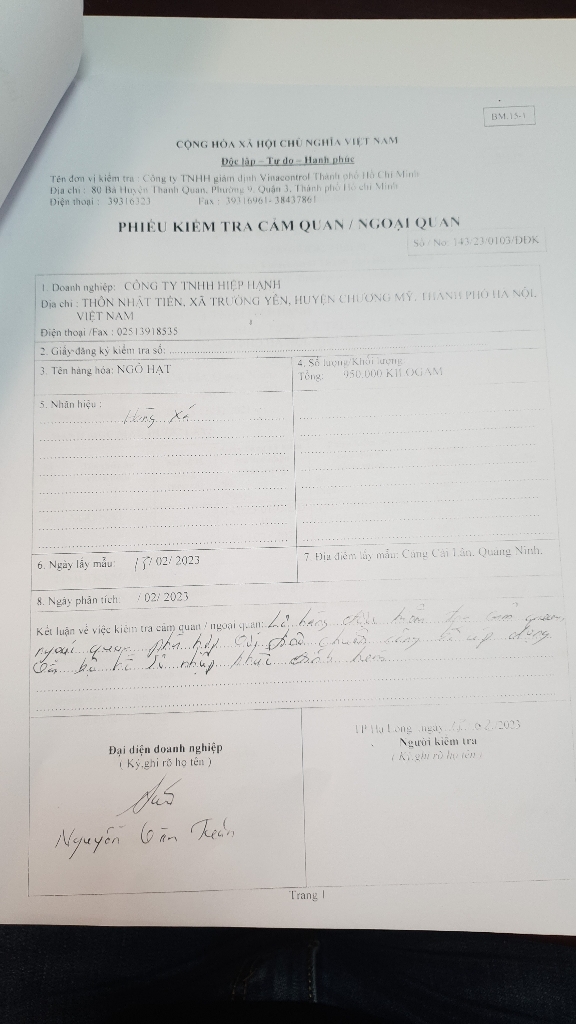 BM.15-1
CỘNG HÒA XÃ HỘI CHỦ NGHĨA VIỆT NAM
Độc lập – Tự do – Hạnh phúc
Tên đơn vị kiểm tra : Công ty TNHH giám định Vinacontrol Thành phố Hồ Chí Minh
Địa chỉ : 80 Bà Huyện Thanh Quan, Phường 9, Quận 3, Thành phố Hồ chí Minh
Điện thoại : 39316323 Fax : 39316961- 38437861
PHIẾU KIỂM TRA CẢM QUAN / NGOẠI QUAN
Số / No: 143/23/0103/ĐĐK
1. Doanh nghiệp: CÔNG TY TNHH HIỆP HẠNH
Địa chỉ : THÔN NHẬT TIẾN, XÃ TRƯỜNG YÊN, HUYỆN CHƯƠNG MỸ, THÀNH PHỐ HÀ NỘI,
VIỆT NAM
Điện thoại /Fax : 02513918535
2. Giấy đăng ký kiểm tra số:
3. Tên hàng hóa: NGÔ HẠT
4. Số lượng/Khối lượng
Tổng: 950.000 KILOGAM
5. Nhãn hiệu :
Hàng Xá
6. Ngày lấy mẫu: 13/ 02/ 2023
7. Địa điểm lấy mẫu: Cảng Cái Lân, Quảng Ninh.
8. Ngày phân tích: / 02/ 2023
Kết luận về việc kiểm tra cảm quan / ngoại quan: Lô hàng cảm quan,
ngoại quan phù hợp chuẩn công bố áp dụng
nhập khẩu
TP Hạ Long, ngày /2023
Đại diện doanh nghiệp
( Ký,ghi rõ họ tên )
Người kiểm tra
( Ký,ghi rõ họ tên )
Nguyễn Văn
Trang 1